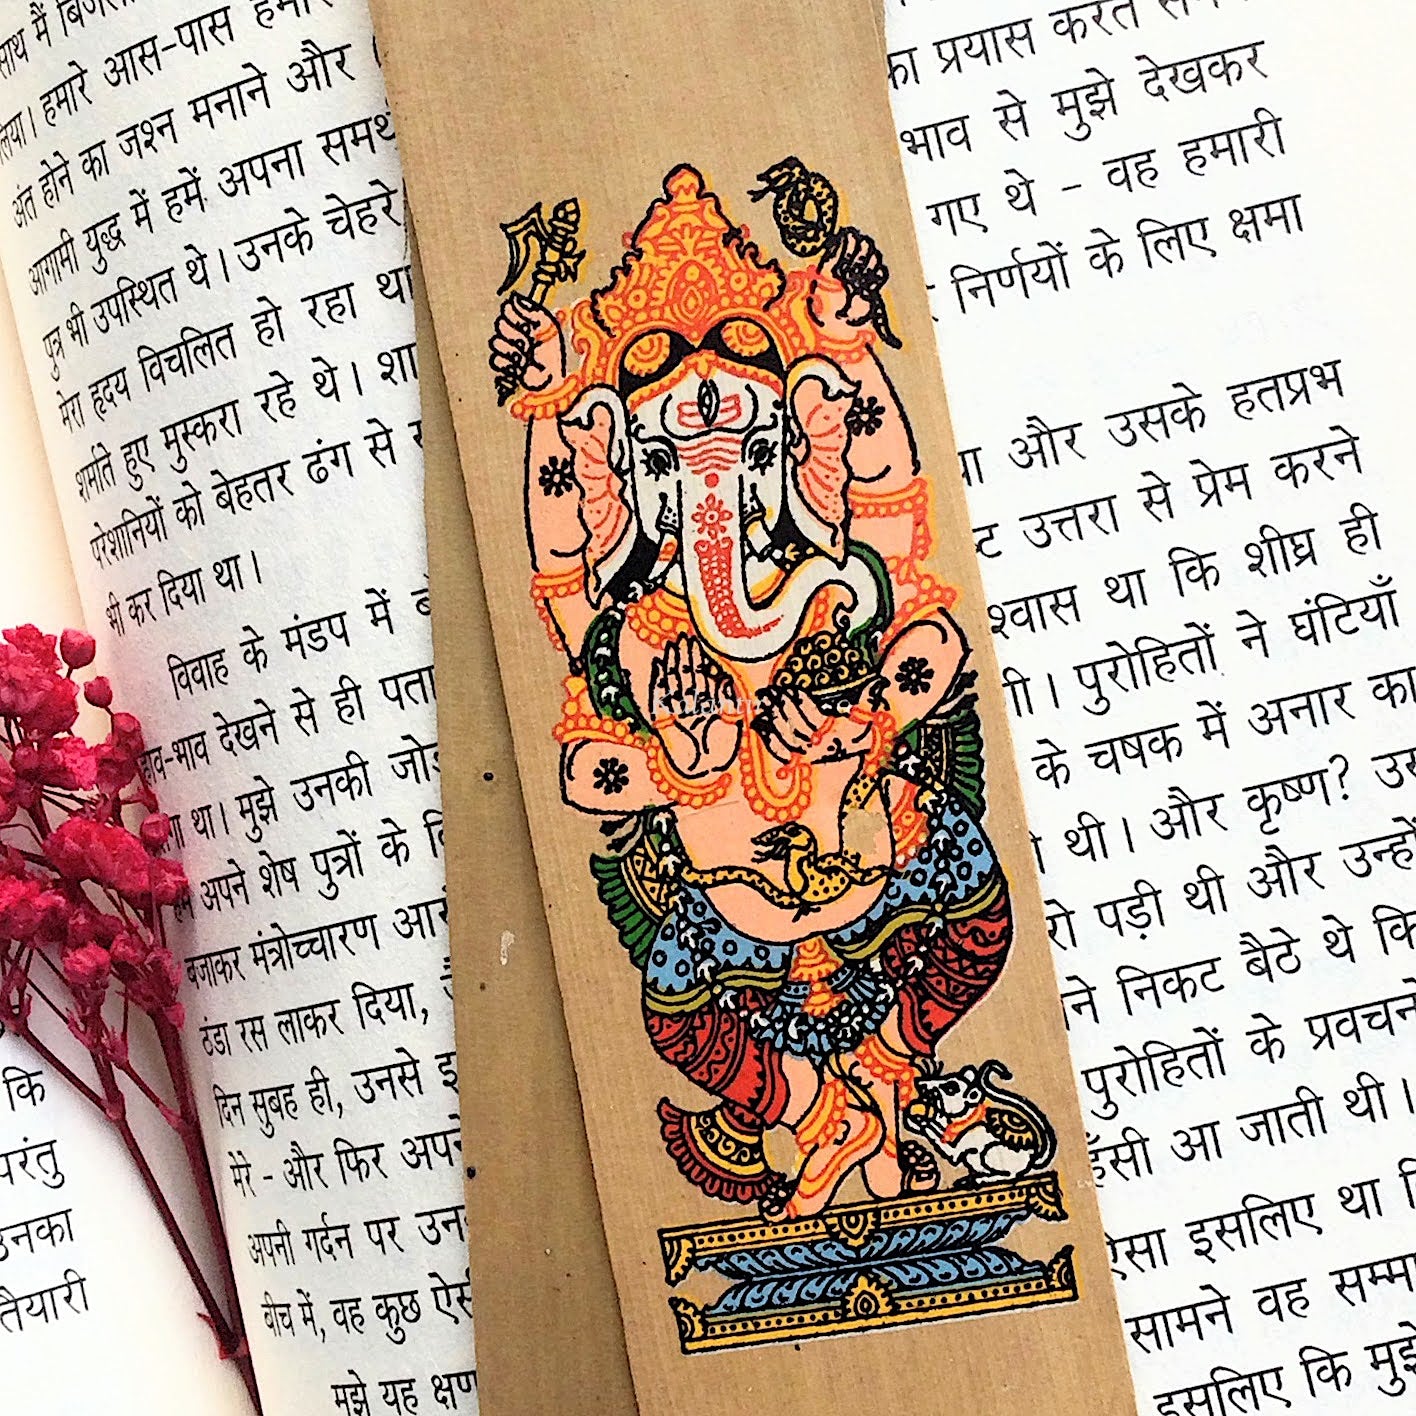 साथ मैं
लिया। हमारे आस-पास हमारे
अंत होने का जश्न मनाने और
आगामी युद्ध में हमें अपना समर्थ
पुत्र भी उपस्थित थे। उनके चेहरे
मेरा हृदय विचलित हो रहा था
शर्माते हुए मुस्करा रहे थे। शा
परेशानियों को बेहतर ढंग से
भी कर दिया था।
विवाह के मंडप में
हाव-भाव देखने से ही पता
था। मुझे उनकी
अपने शेष पुत्रों के
बजाकर मंत्रोच्चारण
ठंडा रस लाकर दिया,
दिन सुबह ही, उनसे
मेरे - और फिर अपने
अपनी गर्दन पर उन
बीच में, वह कुछ ऐसे
मुझे यह क्षण
कि
परंतु
उनका
तैयारी
का प्रयास करते
भाव से मुझे देखकर
गए थे - वह हमारी
निर्णयों के लिए क्षमा
और उसके हतप्रभ
उत्तरा से प्रेम करने
श्वास था कि शीघ्र ही
गी। पुरोहितों ने घंटियाँ
के चषक में अनार का
थी। और कृष्ण?
पड़ी थी और उन्होंने
ने निकट बैठे थे कि
पुरोहितों के प्रवचनों
हँसी आ जाती थी।
ऐसा इसलिए था
सामने वह
इसलिए कि मुझे